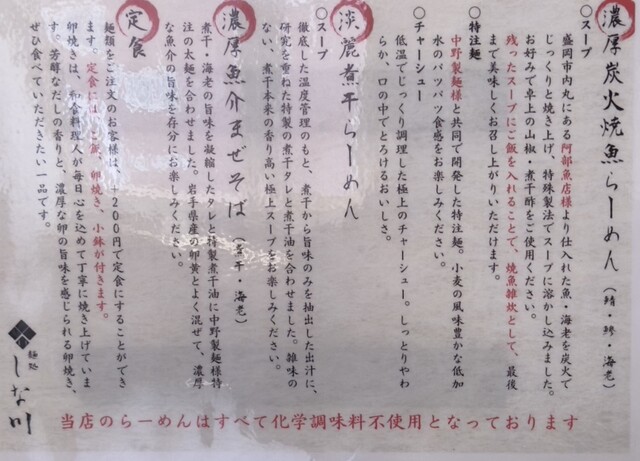 濃厚炭火焼魚らーめん（鯖・鯵・海老）
○スープ
盛岡市内丸にある阿部魚店様より仕入れた魚・海老を炭火で
じっくりと焼き上げ、特殊製法でスープに溶かし込みました。
お好みで卓上の山椒・煮干酢をご使用ください。
残ったスープにご飯を入れることで、焼魚雑炊として、最後
まで美味しくお召し上がりいただけます。
○特注麺
中野製麺様と共同で開発した特注麺。小麦の風味豊かな低加
水のパツパツ食感をお楽しみください。
○チャーシュー
低温でじっくり調理した極上のチャーシュー。しっとりやわ
らか、口の中でとろけるおいしさ。
淡麗煮干らーめん
○スープ
徹底した温度管理のもと、煮干から旨味のみを抽出した出汁に、
研究を重ねた特製の煮干タレと煮干油を合わせました。雑味の
ない、煮干本来の香り高い極上スープをお楽しみください。
濃厚魚介まぜそば（煮干・海老）
煮干・海老の旨味を凝縮したタレと特製煮干油に中野製麺様特
注の太麺を合わせました。岩手県産の卵黄とよく混ぜて、濃厚
な魚介の旨味を存分にお楽しみください。
定食
麺類をご注文のお客様は、＋200円で定食にすることができ
ます。定食にはご飯、卵焼き、小鉢が付きます。
卵焼きは、和食料理人が毎日心を込めて丁寧に焼き上げていま
す。芳醇なだしの香りと、濃厚な卵の旨味を感じられる卵焼き、
ぜひ食べていただきたい一品です。
麺処
しな川
当店のらーめんはすべて化学調味料不使用となっております